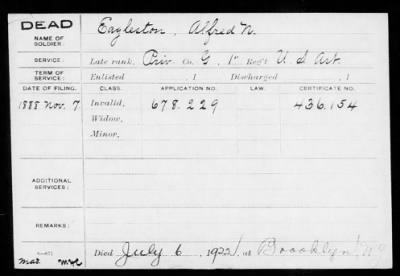 DEAD
NAME OF SOLDIER: Eagleston, Alfred N.
SERVICE: Late rank, Priv Co. G, 1" Reg't U S Art.
TERM OF SERVICE: Enlisted , 1 Discharged , 1
DATE OF FILING. CLASS. APPLICATION NO. LAW. CERTIFICATE NO.
1888 Nov. 7 Invalid, 678.229 436.154
Widow,
Minor,
ADDITIONAL SERVICES:
REMARKS:
Died July 6, 1922, at Brooklyn NY